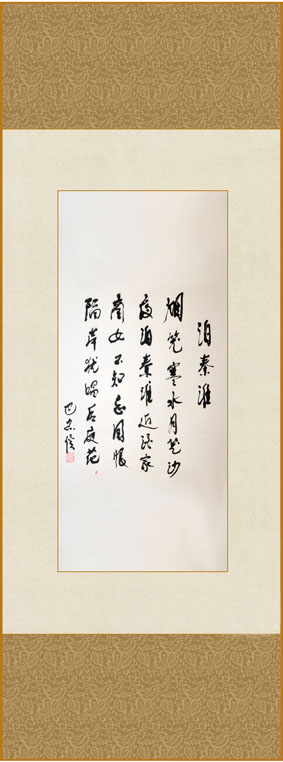 泊秦淮
烟笼寒水月笼沙
夜泊秦淮近酒家
商女不知亡国恨
隔岸犹唱后庭花